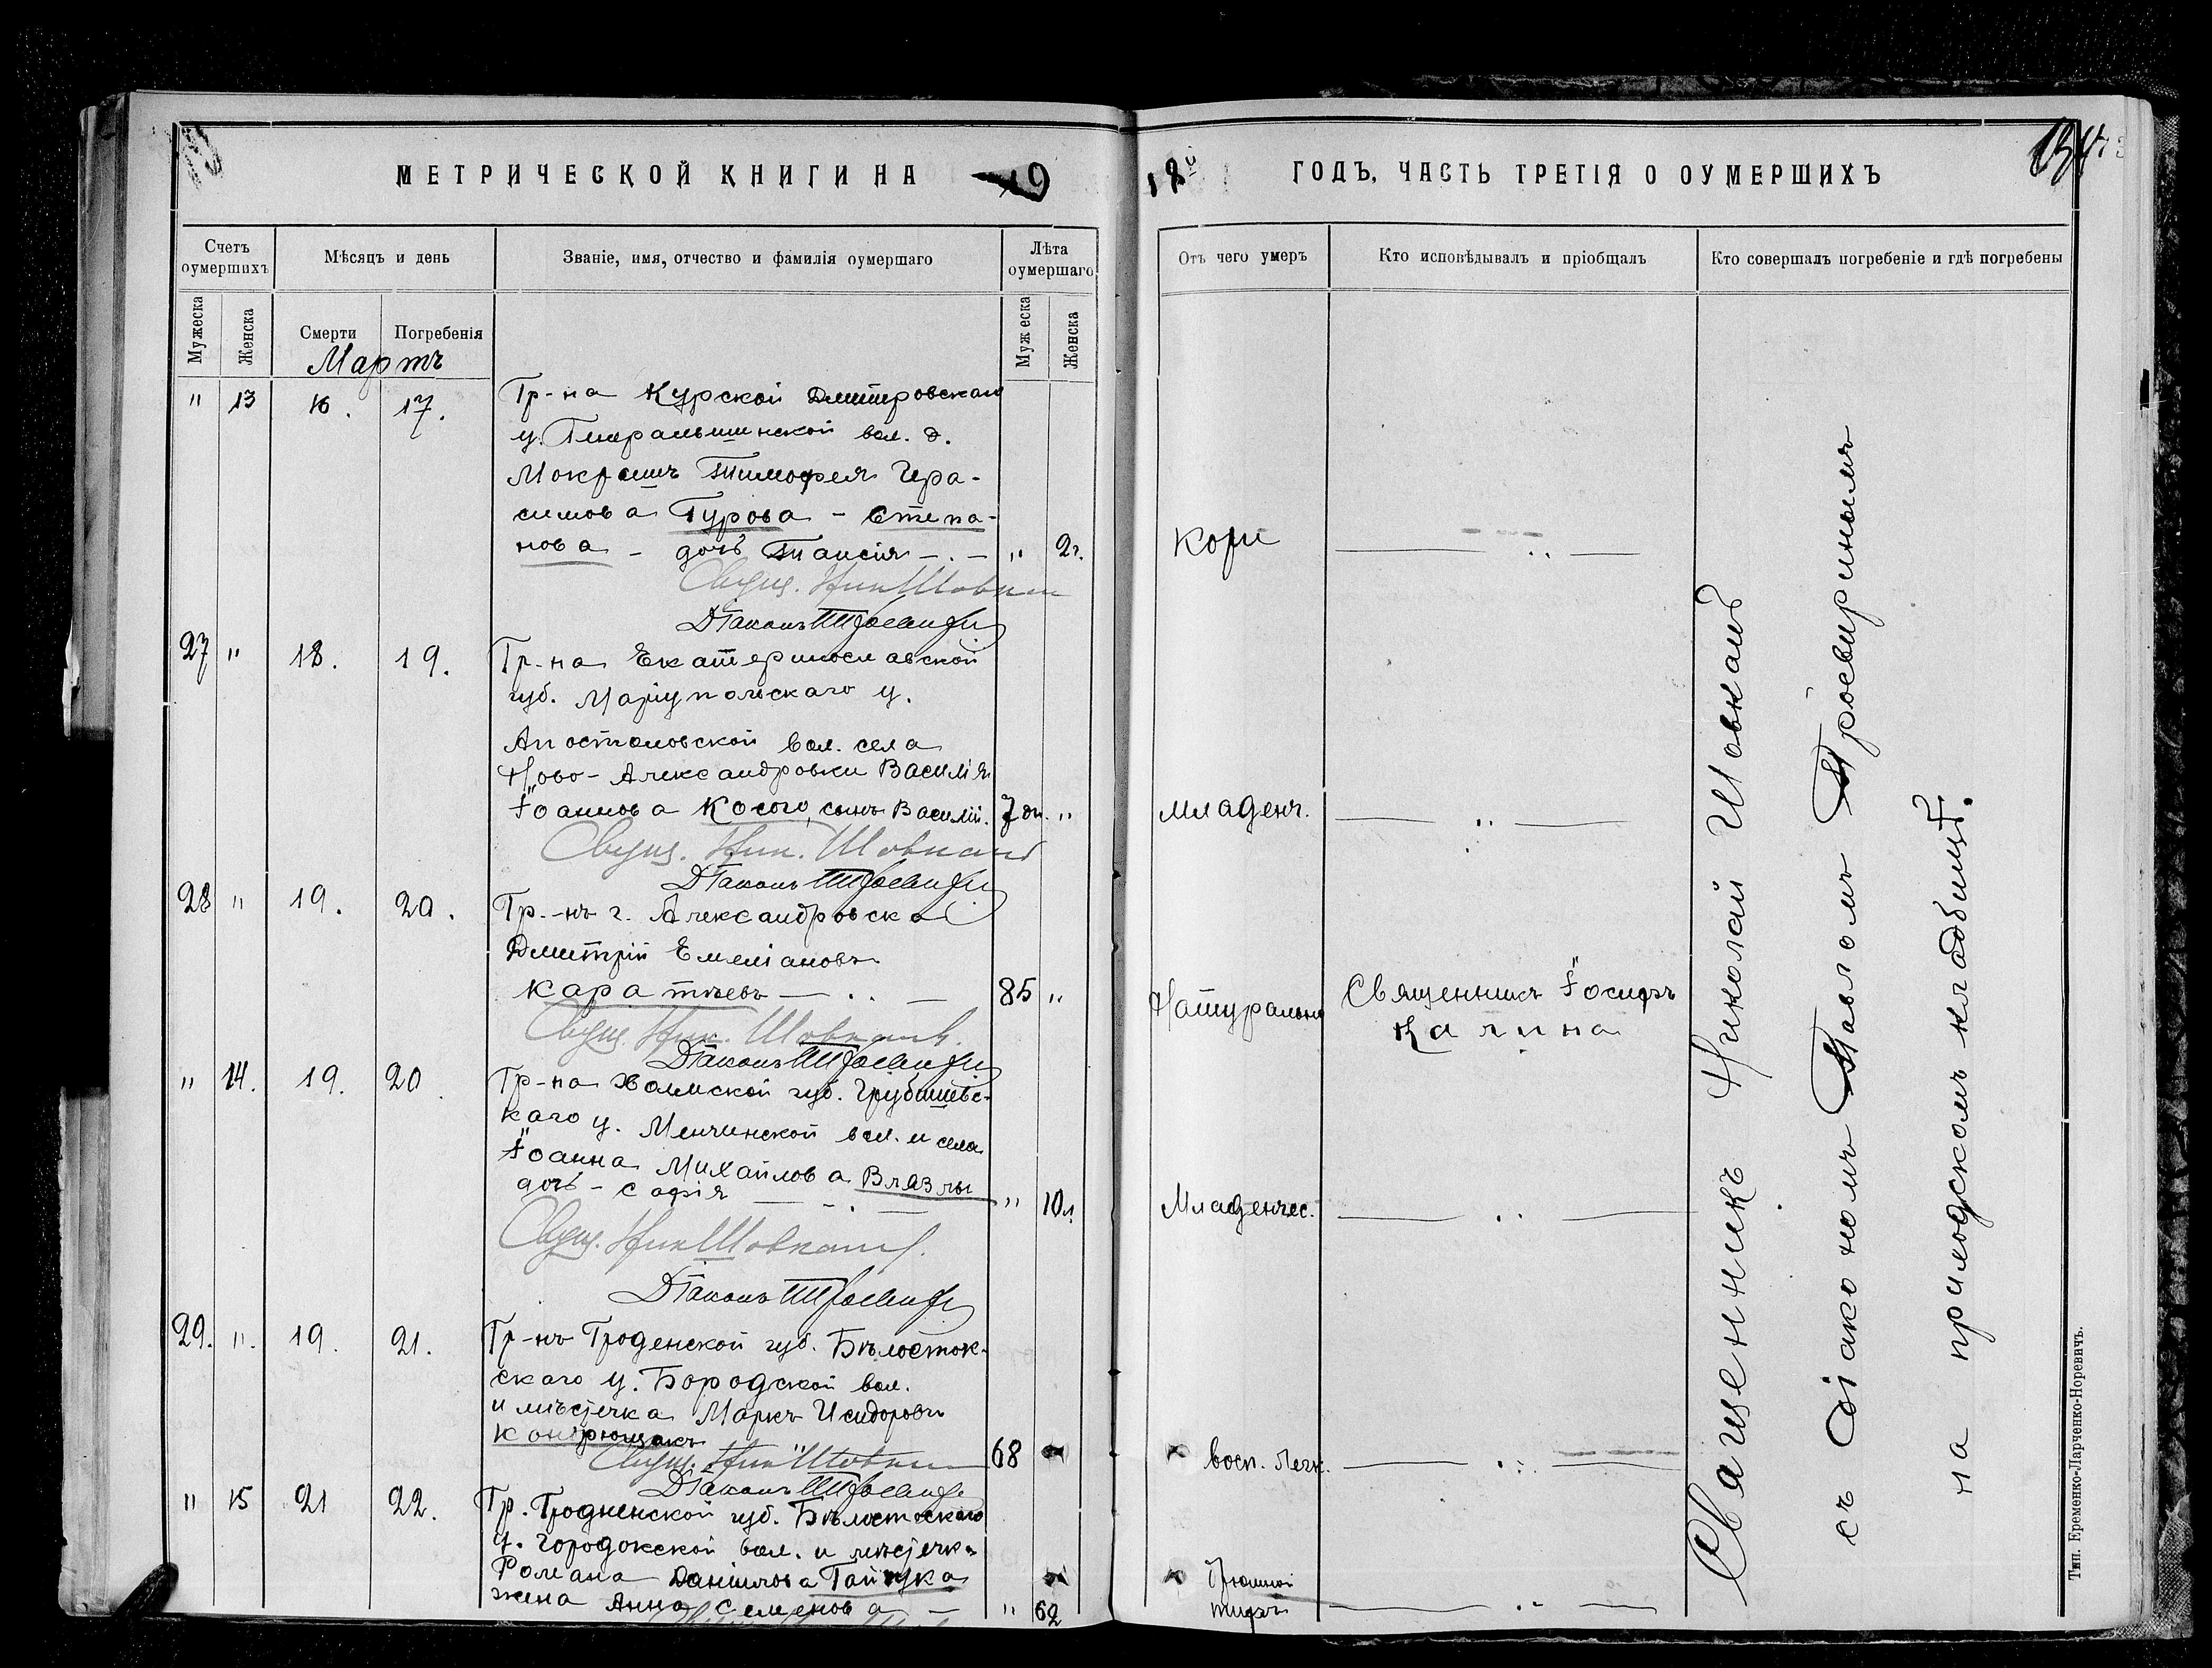 МЕТРИЧЕСКОЙ КНИГИ НА 19
18й ГОДЪ, ЧАСТЬ ТРЕТІЯ О ОУМЕРШИХЪ
Счетъ оумершихъ
Мѣсяцъ и день
Званіе, имя, отчество и фамилія оумершаго
Лѣта оумершаго
Отъ чего умеръ
Кто исповѣдывалъ и пріобщалъ
Кто совершалъ погребеніе и гдѣ погребены
Мужеска
Женска
Смерти
Погребенія
Мужеска
Женска
Мартъ
" 13 16. 17. Гр-на Курской Дмитровскаго
у. вол. д.
Тимофея Гера-
симова Гурова - Степа-
нова - дочь Таисія - . - " 2г. Кори
Свящ. Ник Шовкан
Діаконъ
27 " 18. 19. Гр-на Екатеринославской
губ. Маріупольскаго у.
Апостоловской вол. села
Ново-Александровки Василія
Іоаннова Косого, сынъ Василій. 7 дн. " младенч.
Свящ. Ник. Шовкань
Діаконъ
28 " 19. 20. Гр.-нъ г. Александровска
Дмитрій Емеліановъ
Каратѣевъ - . . - 85 " Натуральн Священникъ Іосифъ
Калина
Свящ. Ник. Шовкань.
Діаконъ
" 14. 19. 20 Гр-на Холмской губ. Грубешевс-
каго у. Менчинской вол. и села
Іоанна Михайлова Влязлы
дочь - Софія " 10л. Младенчес.
Свящ. Ник Шовкань.
Діаконъ
29. ". 19. 21. Гр-нъ Гроденской губ. Бѣлосток-
скаго у. Бородской вол.
и мѣстечка Маркъ Исидоровъ
68 восп. легк.
Свящ. Ник Шовкан
Діаконъ
" 15 21 22. Гр. Гродненской губ. Бѣлостоскаго
у. Городокской вол. и мѣстечка
Романа Даніилова Гайчука
жена Анна Семенова - " 62 Брюшной
тифъ
Священникъ Николай Шовкань
съ діакономъ Павломъ Просвирнымъ
на приходскомъ кладбищѣ.
Тип. Еременко-Ларченко-Норевичъ.